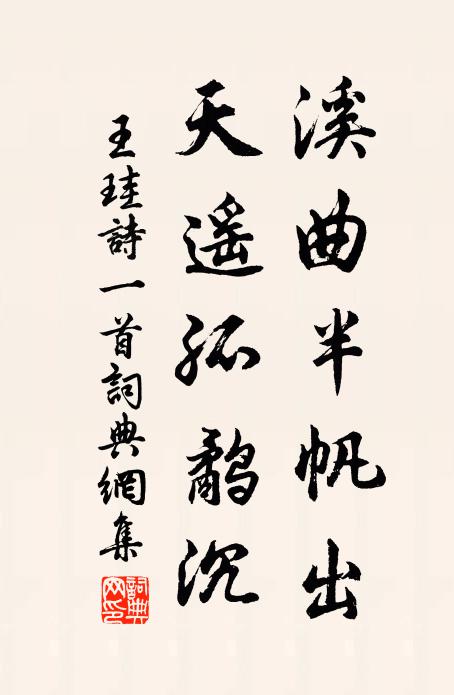 溪曲半帆出
天遥孤鷸沉
王珪詩一首詞典網集
詞典網印